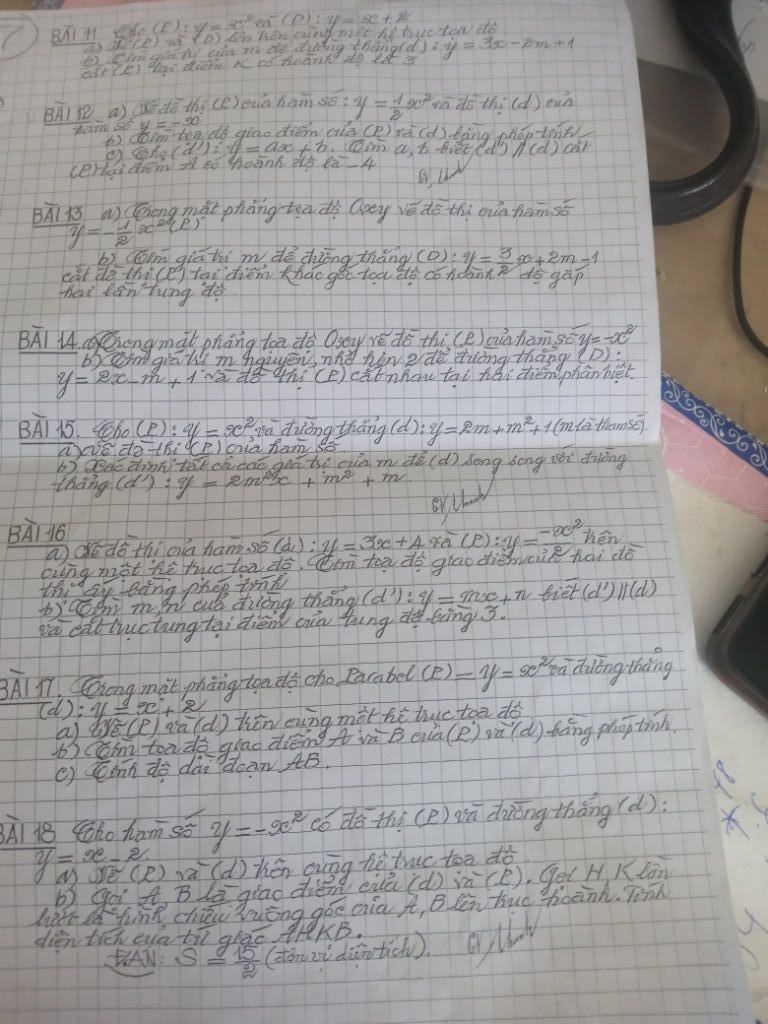 BÀI 11 Cho (P): y = x² và (D): y = x + 2
a) Vẽ (P) và (D) lên trên cùng một hệ trục tọa độ
b) Tìm giá trị của m để đường thẳng (d): y = 3x - 2m + 1
cắt (P) tại điểm K có hoành độ là 3
BÀI 12 a) Vẽ đồ thị (P) của hàm số: y = 1/2 x² và đồ thị (d) của
hàm số y = -x
b) Tìm tọa độ giao điểm của (P) và (d) bằng phép tính
c) Cho (d'): y = ax + b. Tìm a, b biết (d') // (d) cắt
(P) tại điểm A có hoành độ là -4
BÀI 13 a) Trong mặt phẳng tọa độ Oxy vẽ đồ thị của hàm số
y = -1/2 x² (P)
b) Tìm giá trị m để đường thẳng (D): y = 3/2 x + 2m - 1
cắt đồ thị (P) tại điểm khác gốc tọa độ có hoành độ gấp
hai lần tung độ
BÀI 14 a) Trong mặt phẳng tọa độ Oxy vẽ đồ thị (P) của hàm số y = -x²
b) Tìm giá trị m nguyên, nhỏ hơn 2 để đường thẳng (D):
y = 2x - m + 1 và đồ thị (P) cắt nhau tại hai điểm phân biệt.
BÀI 15. Cho (P): y = x² và đường thẳng (d): y = 2m + m² + 1 (m là tham số)
a) Vẽ đồ thị (P) của hàm số
b) Xác định tất cả các giá trị của m để (d) song song với đường
thẳng (d'): y = 2m²x + m² + m
BÀI 16
a) Vẽ đồ thị của hàm số (d): y = 3x + 4 và (P): y = -x²/2 trên
cùng một hệ trục tọa độ. Tìm tọa độ giao điểm của hai đồ
thị ấy bằng phép tính
b) Tìm m, n của đường thẳng (d'): y = mx + n biết (d') // (d)
và cắt trục tung tại điểm của tung độ bằng 3.
BÀI 17. Trong mặt phẳng tọa độ cho Parabol (P) - y = x² và đường thẳng
(d): y = x + 2
a) Vẽ (P) và (d) trên cùng một hệ trục tọa độ
b) Tìm tọa độ giao điểm A và B của (P) và (d) bằng phép tính.
c) Tính độ dài đoạn AB.
BÀI 18 Cho hàm số y = -x² có đồ thị (P) và đường thẳng (d):
y = x - 2.
a) Vẽ (P) và (d) trên cùng hệ trục tọa độ
b) Gọi A, B là giao điểm của (d) và (P). Gọi H, K lần
lượt là hình chiếu vuông góc của A, B lên trục hoành. Tính
diện tích của tứ giác AHKB.
S = 15/2 (đơn vị diện tích).